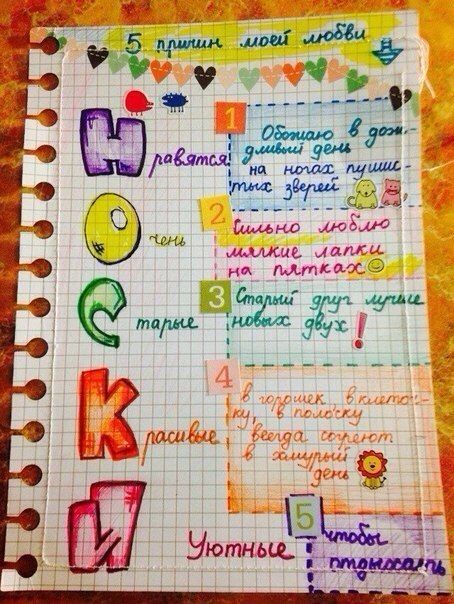 5 причин моей любви
Нравятся
1
Обожаю в дож-
дливый день
на ногах пушис-
тых зверей
Очень
2
Сильно люблю
мягкие лапки
на пятках
Старые
3
Старый друг лучше
новых двух!
Красивые
4
в горошек в клеточ-
ку, в полоску
всегда согреют
в хмурый
день
И
Уютные
5
чтобы